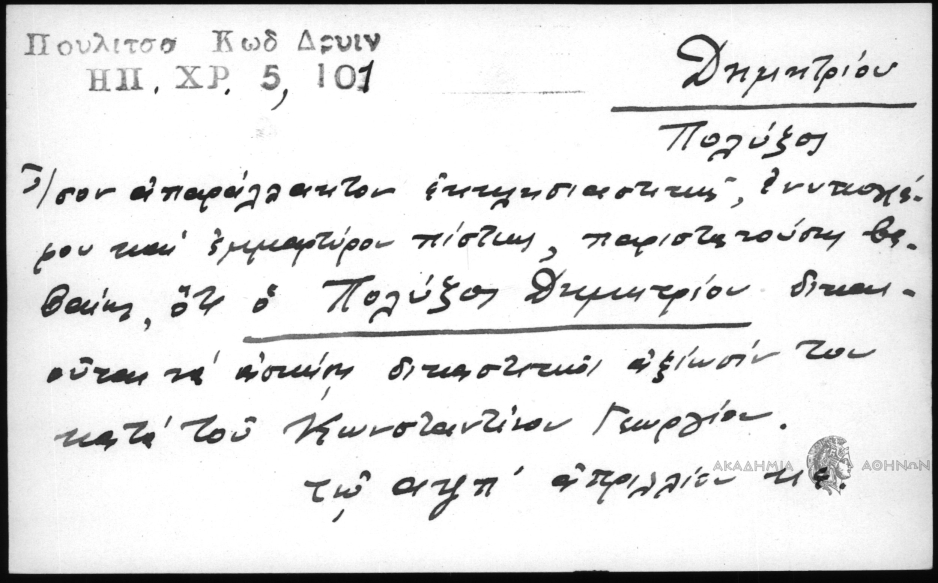 Πουλιτσα Κωδ Δρυιν
ΗΠ. ΧΡ. 5, 101
Δημητρίου
Πολύξος
Ἴσον ἀπαράλλακτον ἐκκλησιαστικῆς, ἐνυπογρά-
φου καὶ ἐμμαρτύρου πίστεως, παριστανούσης βε-
βαίως, ὅτι ὁ Πολύξος Δημητρίου δικαι-
οῦται νὰ ἀσκήσῃ δικαστικῶς ἀξίωσίν του
κατὰ τοῦ Κωνσταντίνου Γεωργίου.
τῷ αψπ' ἀπριλλίου κε.
ΑΚΑΔΗΜΙΑ ΑΘΗΝΩΝ